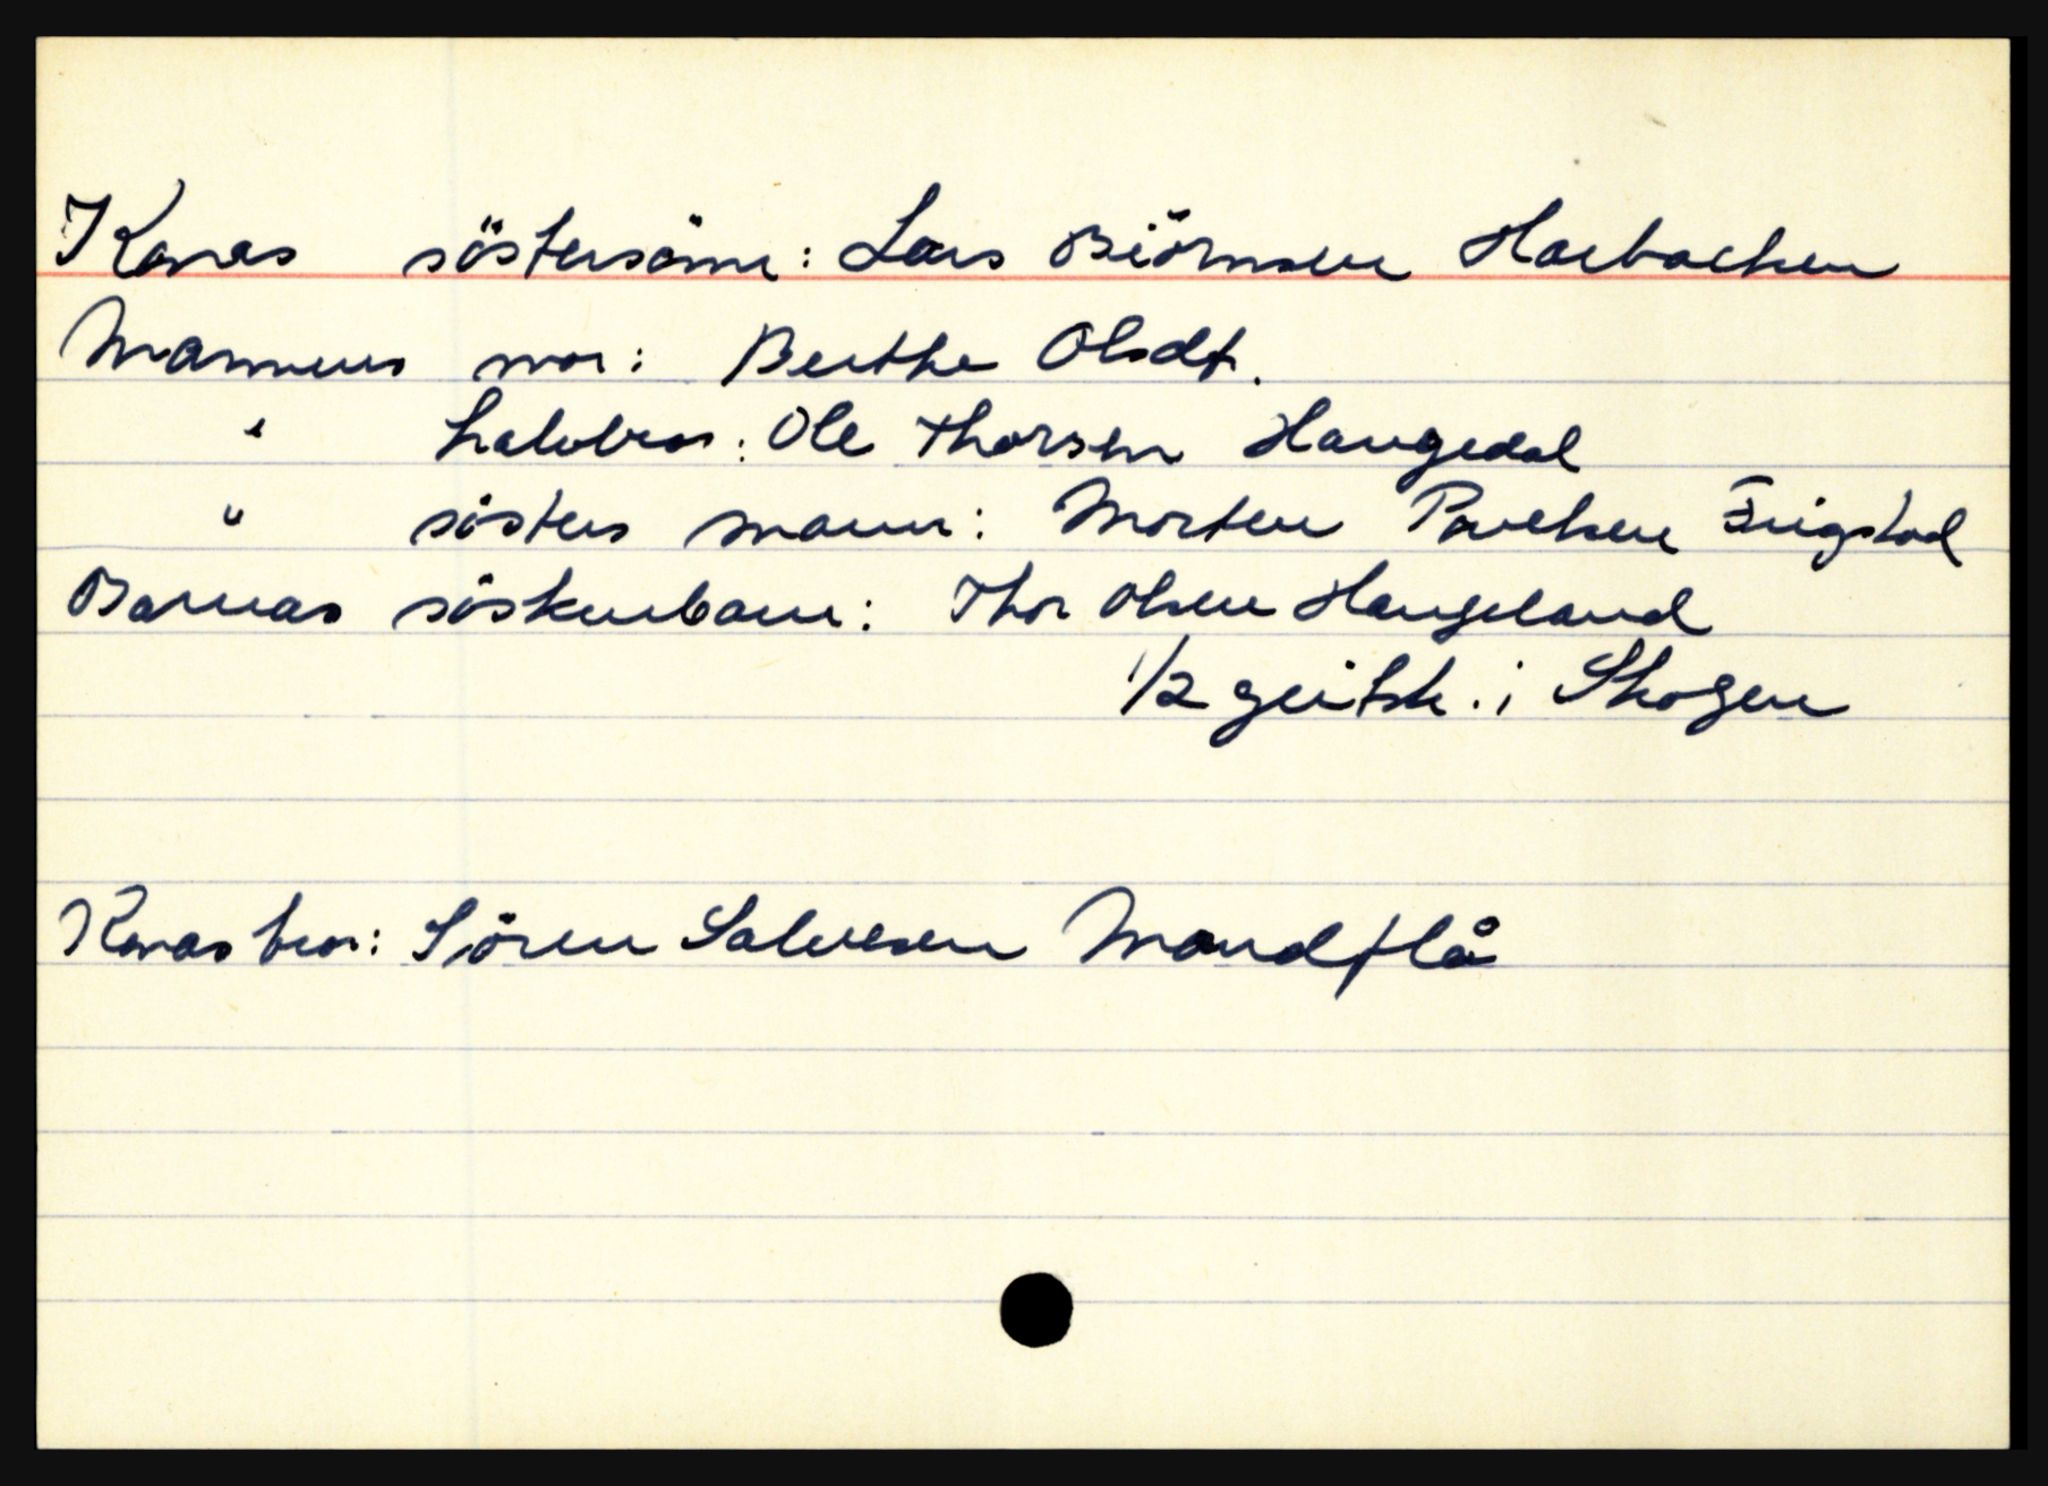 Konas söstersönn: Lars Biörnsen Haebacken
Mannens mor: Berthe Olsdt.
" halvbror: Ole Thorsen Haugedal
" sösters mann: Morten Povelsen Frigstad
Barnas söskenbarn: Thor Olsen Haugeland
1/2 geitsk. i Skogen
Konas bror: Sören Salvesen Mandflå